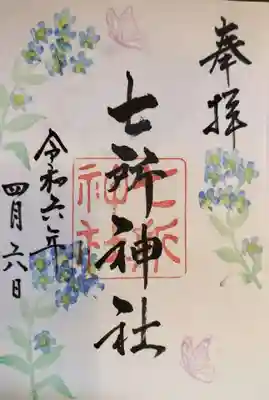 奉拝
七所神社
七所
神社
令和六年
四月六日